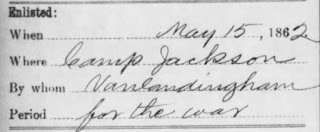 Enlisted:
When May 15, 1862
Where Camp Jackson
By whom Vanlandingham
Period for the war